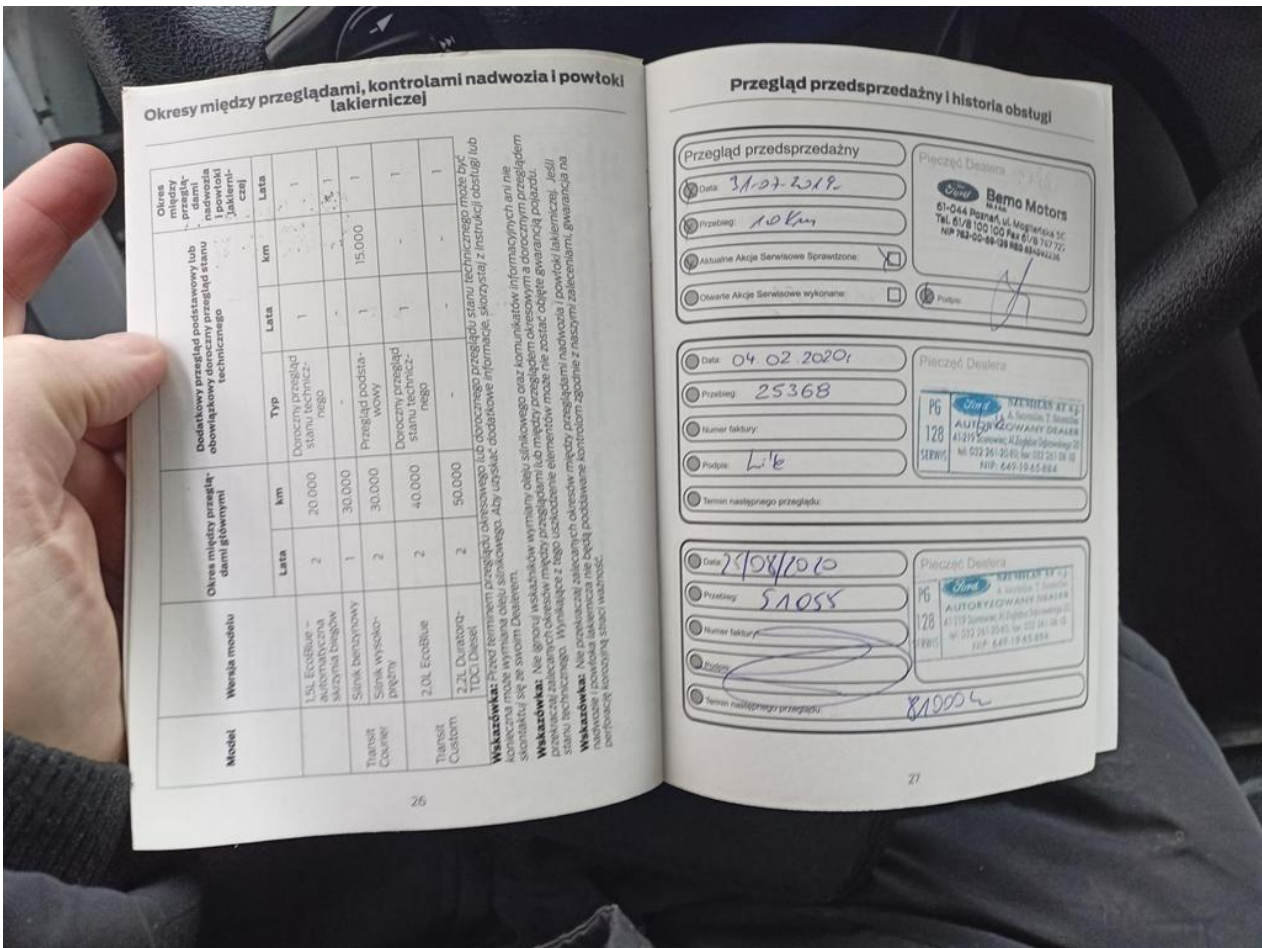 Okresy między przeglądami, kontrolami nadwozia i powłoki
lakierniczej
Model
Wersja modelu
Okres między przeglą-
dami głównymi
Dodatkowy przegląd podstawowy lub
obowiązkowy doroczny przegląd stanu
technicznego
Okres
między
przeglą-
dami
nadwozia
i powłoki
lakierni-
czej
Lata
km
Typ
Lata
km
Lata
1,5L EcoBlue –
automatyczna
skrzynia biegów
2
20.000
Doroczny przegląd
stanu technicz-
nego
1
-
1
Silnik benzynowy
1
30.000
-
-
-
1
Transit
Courier
Silnik wysoko-
prężny
2
30.000
Przegląd podsta-
wowy
1
15.000
1
2.0L EcoBlue
2
40.000
Doroczny przegląd
stanu technicz-
nego
1
-
1
Transit
Custom
2.2L Duratorq-
TDCi Diesel
2
50.000
-
-
-
1
Wskazówka: Przed terminem przeglądu okresowego lub dorocznego przeglądu stanu technicznego może być
konieczna może wymiana oleju silnikowego. Aby uzyskać dodatkowe informacje, skorzystaj z Instrukcji obsługi lub
skontaktuj się ze swoim Dealerem.
Wskazówka: Nie ignoruj wskaźników wymiany oleju silnikowego oraz komunikatów informacyjnych ani nie
przekraczaj zalecanych okresów między przeglądami lub między przeglądem okresowym a dorocznym przeglądem
stanu technicznego. Wynikające z tego uszkodzenie elementów może nie zostać objęte gwarancją pojazdu.
Wskazówka: Nie przekraczaj zalecanych okresów między przeglądami nadwozia i powłoki lakierniczej. Jeśli
nadwozie i powłoka lakiernicza nie będą poddawane kontrolom zgodnie z naszymi zaleceniami, gwarancja na
perforację korozyjną straci ważność.
26
Przegląd przedsprzedażny i historia obsługi
Przegląd przedsprzedażny
Data: 31-07-2019
Przebieg: 10 km
Aktualne Akcje Serwisowe Sprawdzone:
Otwarte Akcje Serwisowe wykonane:
Pieczęć Dealera
Ford
Bemo Motors
61-044 Poznań, ul.
Tel. 61/8 100 100 Fax 61/8
NIP
Podpis:
Data: 04.02.2020r
Przebieg: 25368
Numer faktury:
Podpis:
Termin następnego przeglądu:
Pieczęć Dealera
PG
128
SERWIS
Ford
AUTORYZOWANY DEALER
41-219 Sosnowiec,
NIP: 649-19-65-884
Data: 25/08/2020
Przebieg: 51055
Numer faktury:
Podpis:
Termin następnego przeglądu: 81000
Pieczęć Dealera
PG
128
SERWIS
Ford
AUTORYZOWANY DEALER
41-219 Sosnowiec,
NIP: 649-19-65-884
27